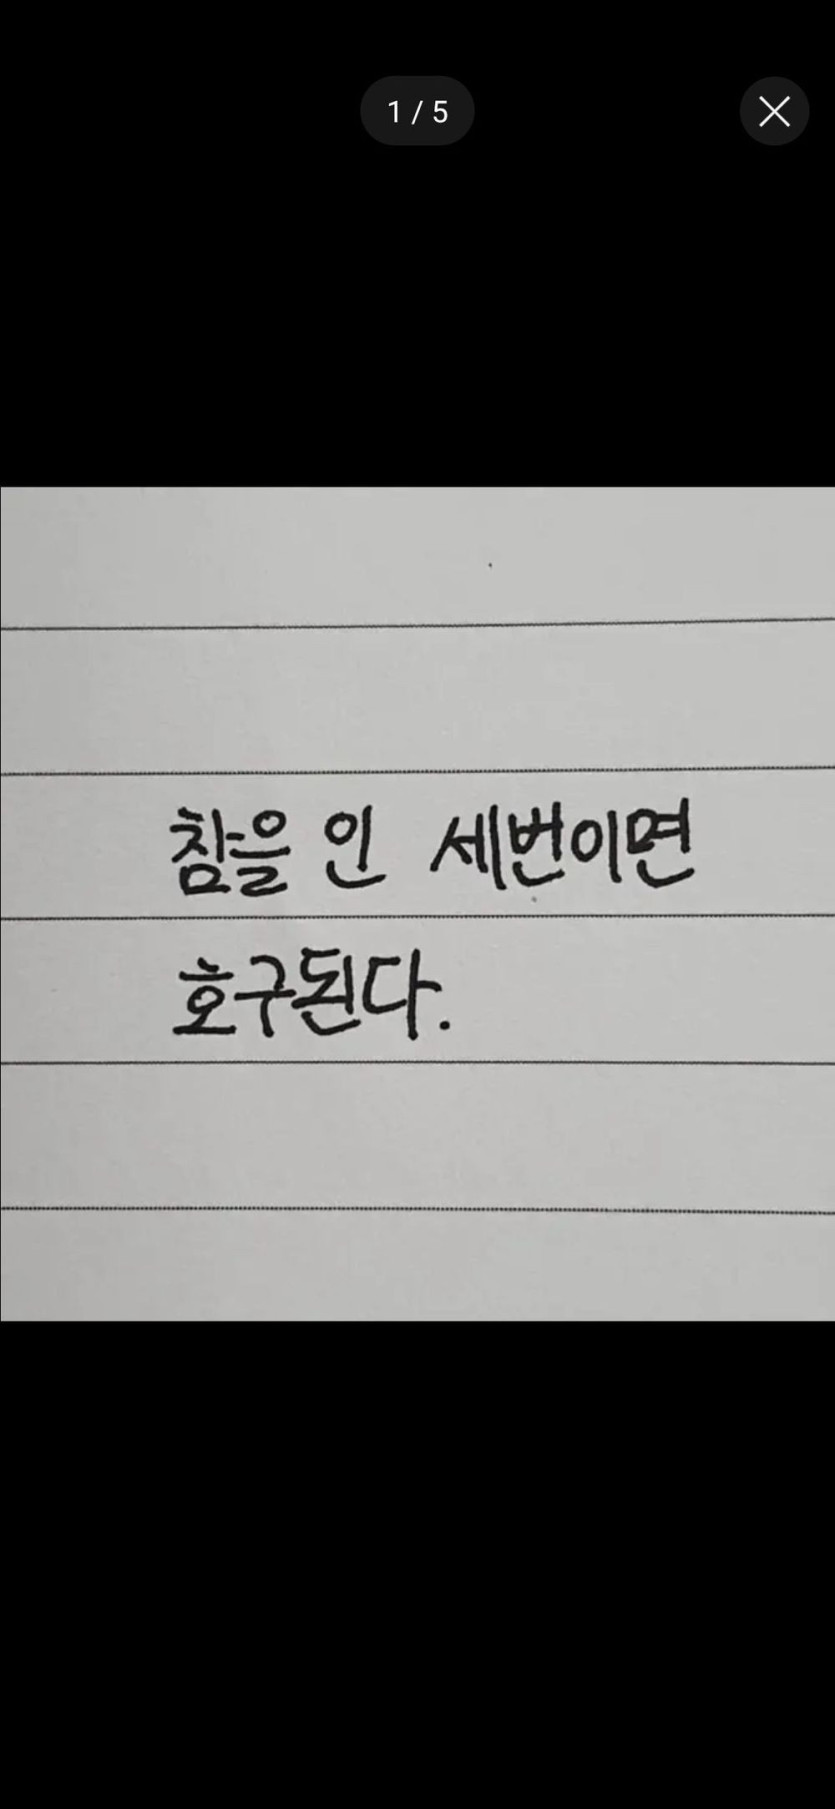 1 / 5
참을 인 세번이면
호구된다.